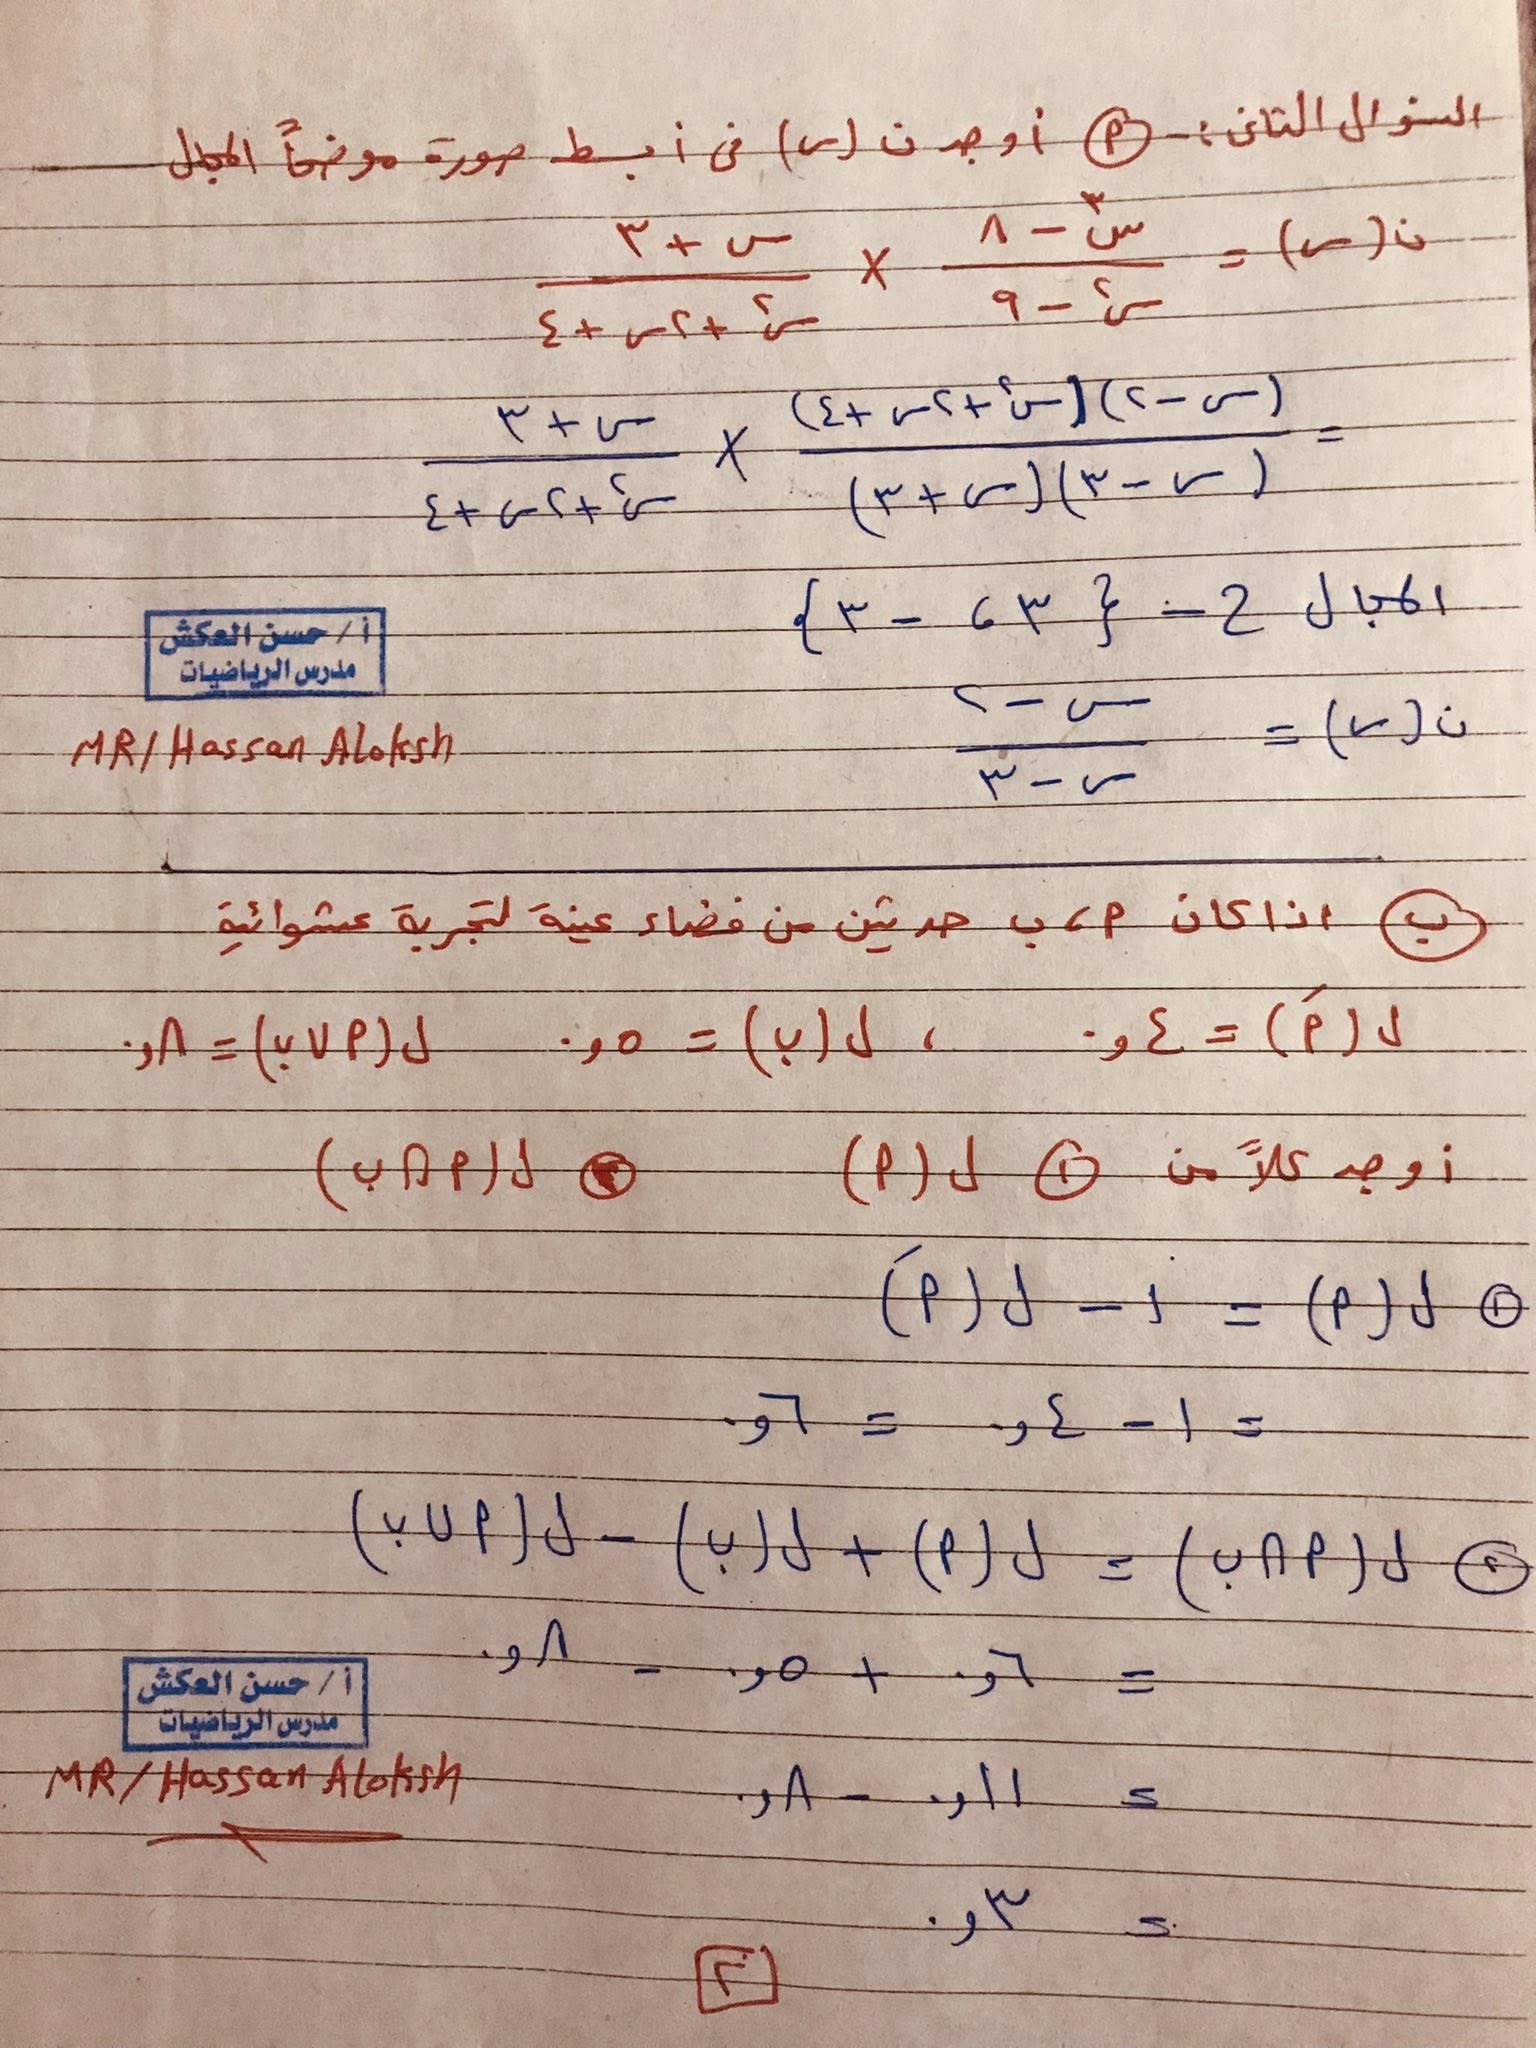 السؤال الثانى :- (أ) أوجد ن (س) فى أبسط صورة موضحاً المجال
ن (س) = (س٣ - ٨)/(س٢ - ٩) × (س + ٣)/(س٢ + ٢س + ٤)
= (س - ٢)(س٢ + ٢س + ٤)/(س - ٣)(س + ٣) × (س + ٣)/(س٢ + ٢س + ٤)
المجال ح - {٣ ، - ٣}
أ/ حسن العكش
مدرس الرياضيات
ن (س) = (س - ٢)/(س - ٣)
MR/Hassan Aloksh
(ب) اذا كان أ ، ب حدثين من فضاء عينة لتجربة عشوائية
ل (أَ) = ٤و٠ ، ل (ب) = ٥و٠ ل (أ U ب) = ٨و٠
أوجد كلاً من (١) ل (أ) (٢) ل (أ ∩ ب)
(١) ل (أ) = ١ - ل (أَ)
= ١ - ٤و٠ = ٦و٠
(٢) ل (أ ∩ ب) = ل (أ) + ل (ب) - ل (أ U ب)
= ٦و٠ + ٥و٠ - ٨و٠
أ/ حسن العكش
مدرس الرياضيات
MR/Hassan Aloksh
= ١١و٠ - ٨و٠
= ٣و٠
٢